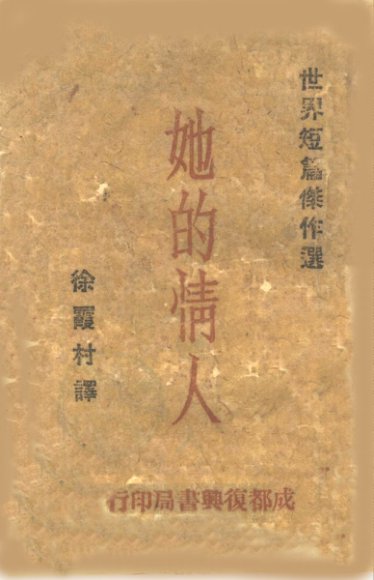 世界短篇傑作選
她的情人
徐霞村譯
成都復興書局印行